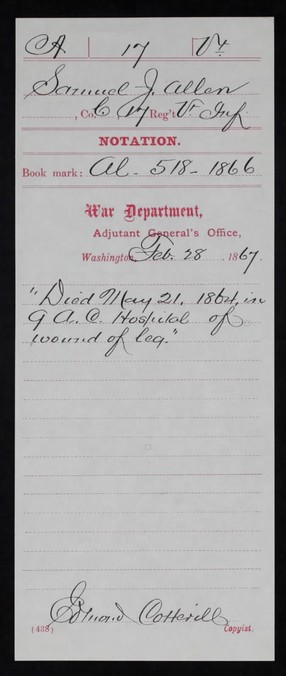 A | 17 | Vt
Samuel J. Allen
, Co. C, 17 Reg't Vt Inf
NOTATION.
Book mark: Al - 518 - 1866
War Department,
Adjutant General's Office,
Washington, Feb. 28, 1867.
"Died May 21, 1864, in
9 A. C. Hospital of
wound of leg."
Edmond Cotterill
(438) Copyist.